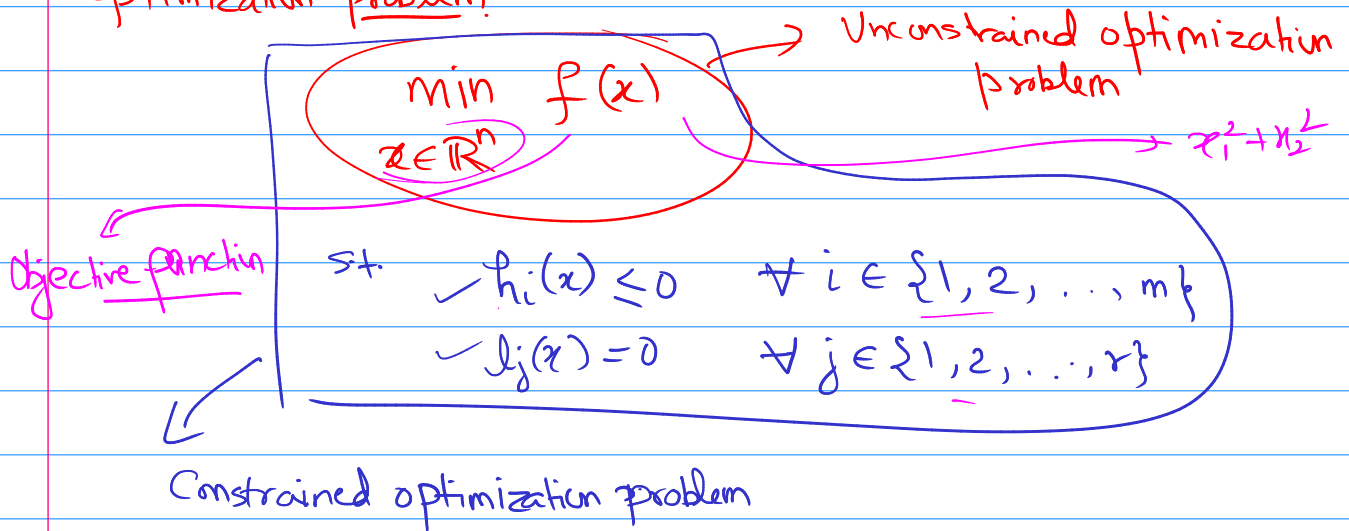 problem!
Unconstrained optimization
problem
min f(x)
x ∈ ℝⁿ
x₁² + x₂²
Objective function
s.t. ✓ hᵢ(x) ≤ 0 ∀ i ∈ {1, 2, . . , m}
✓ lⱼ(x) = 0 ∀ j ∈ {1, 2, . . . , r}
Constrained optimization problem